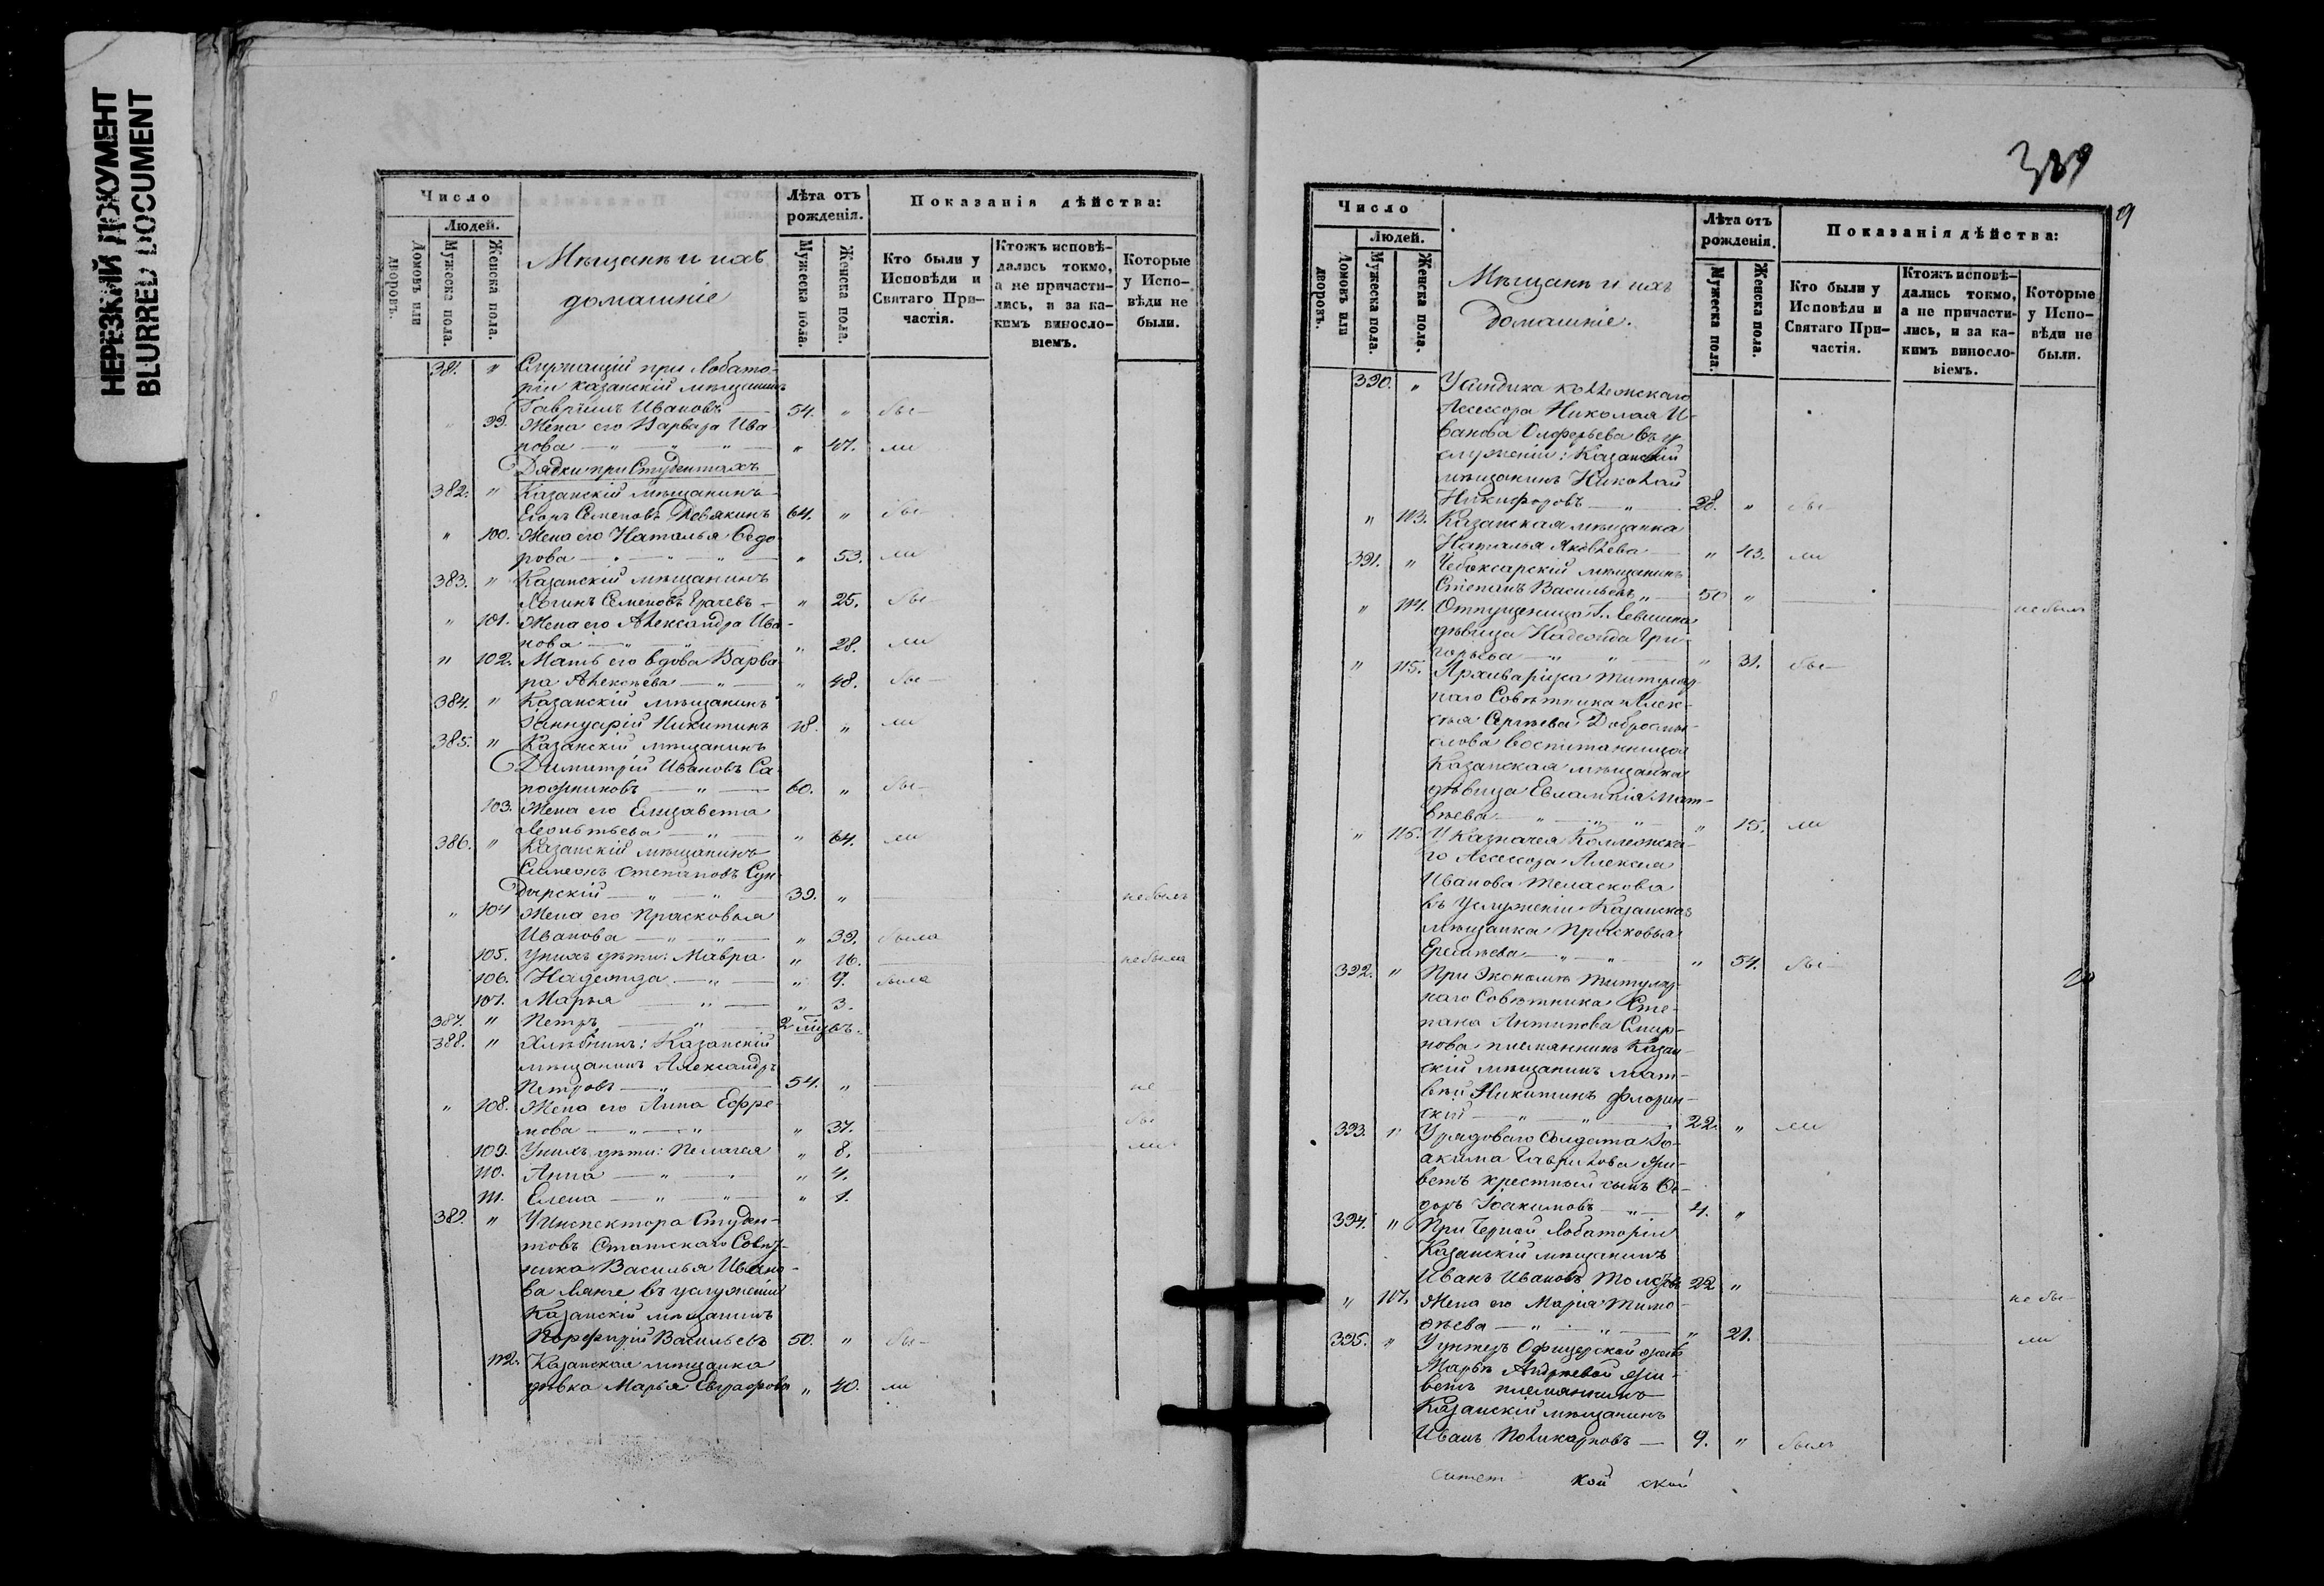 НЕРЕЗКИЙ ДОКУМЕНТ
BLURRED DOCUMENT
Число
Людей.
Домовъ или дворовъ.
Мужеска пола.
Женска пола.
Мѣщане и ихъ
домашніе
Лѣта отъ рожденія.
Мужеска пола.
Женска пола.
Показанія дѣйства:
Кто были у Исповѣди и Святаго При-частія.
Ктожъ исповѣ-дались токмо, а не причасти-лись, и за ка-кимъ виносло-віемъ.
Которые у Испо-вѣди не были.
381. " Служащій при Лобато-
ріи казанскій мѣщанинъ
Гавріилъ Ивановъ — 54. " бы-
99. Жена его Варвара Ива
нова — " — " — " 47. ли
Дядки при Студентахъ
382. " Казанскій мѣщанинъ
Егоръ Семеновъ Девякинъ 64. " бы-
" 100. Жена его Наталья Ѳедо
рова — " — " 53. ли
383. " Казанскій мѣщанинъ
Логинъ Семеновъ Грачевъ — " 25. бы-
" 101. Жена его Александра Ива-
нова — " — " 28. ли
" 102. Мать его вдова Варва
ра Алексѣева — " — " 48. бы-
384. " Казанскій мѣщанинъ
Іаннуарій Никитинъ 18. " ли
385. " Казанскій мѣщанинъ
Димитрій Ивановъ Са-
пожниковъ — " — 60. " бы-
103. Жена его Елизавета
Леонтьева — " — " 64. ли
386. " Казанскій мѣщанинъ
Симеонъ Степановъ Сун
дырскій — " — " 39. " небылъ
" 104 Жена его Прасковья
Иванова — " — " — " 39. была
105. У нихъ дѣти: Мавра " 16. небыла
106. Надежда — " — " 9. была
107. Марья — " — " 3.
387. " Петръ — " — 2 мѣсъ.
388. " Хлѣбникъ: Казанскій
мѣщанинъ Александръ
Петровъ — " — 54. " не
" 108. Жена его Анна Ефре-
мова — " — " — " 37. бы
109. У нихъ дѣти: Пелагея " 8. ли
110. Анна — " — " 4.
111. Елена — " — " — " 1.
389. " У Инспектора Студен-
товъ Статскаго Совѣт-
ника Василья Ивано-
ва Ланге въ услуженіи
Казанскій мѣщанинъ
Порфирій Васильевъ 50. " бы-
112. Казанская мѣщанка
дѣвка Марья Евграфова " 40. ли
389
9
Число
Людей.
Домовъ или дворовъ.
Мужеска пола.
Женска пола.
Мѣщане и ихъ
Домашніе.
Лѣта отъ рожденія.
Мужеска пола.
Женска пола.
Показанія дѣйства:
Кто были у Исповѣди и Святаго При-частія.
Ктожъ исповѣ-дались токмо, а не причасти-лись, и за ка-кимъ виносло-віемъ.
Которые у Испо-вѣди не были.
390. "
Асессора Николая И-
ванова Олферьева въ у-
служеніи: Казанскій
мѣщанинъ Николай
Никифоровъ — " — 28. " бы
" 113. Казанская мѣщанка
Наталья Яковлева — " 43. ли
391. " Чебоксарскій мѣщанинъ
Степанъ Васильевъ " — 50 " небылъ
" 114. Отпущеница Г. Левшина
дѣвица Надежда Гри-
горьева — " — " — " 31. бы-
" 115. Архиваріуса титуляр-
наго Совѣтника Алек-
сѣя Сергѣева Добросмы-
слова воспитанница
Казанская мѣщанка
дѣвица Евлампія Мат-
вѣева — " — " — " 15. ли
" 116. У Казначея Коллежска-
го Асессора Алексѣя
Иванова
въ услуженіи Казанская
мѣщанка Прасковья
Еремѣева — " — " — " 54. бы-
392. " При Экономѣ титуляр-
наго Совѣтника Сте-
пана Антипова Смир-
нова племянникъ Казан-
скій мѣщанинъ Мат-
вѣй Никитинъ Флорин-
скій — " — " — 22. " ли
393. " У рядоваго Солдата Іо-
акима Гаврилова жи-
ветъ крестный сынъ Ѳе-
доръ Іоакимовъ — " — 4. "
394. " При Черной Лобаторіи
Казанскій мѣщанинъ
Иванъ Ивановъ 22 " не бы-
" 117. Жена его Марія Тимо-
ѳѣева — " — " — " 21. ли
395. " У унтеръ Офицерской женѣ
Марьѣ Андреевой жи-
ветъ племянникъ
Казанскій мѣщанинъ
Иванъ Поликарповъ — 9. " былъ
кой ской